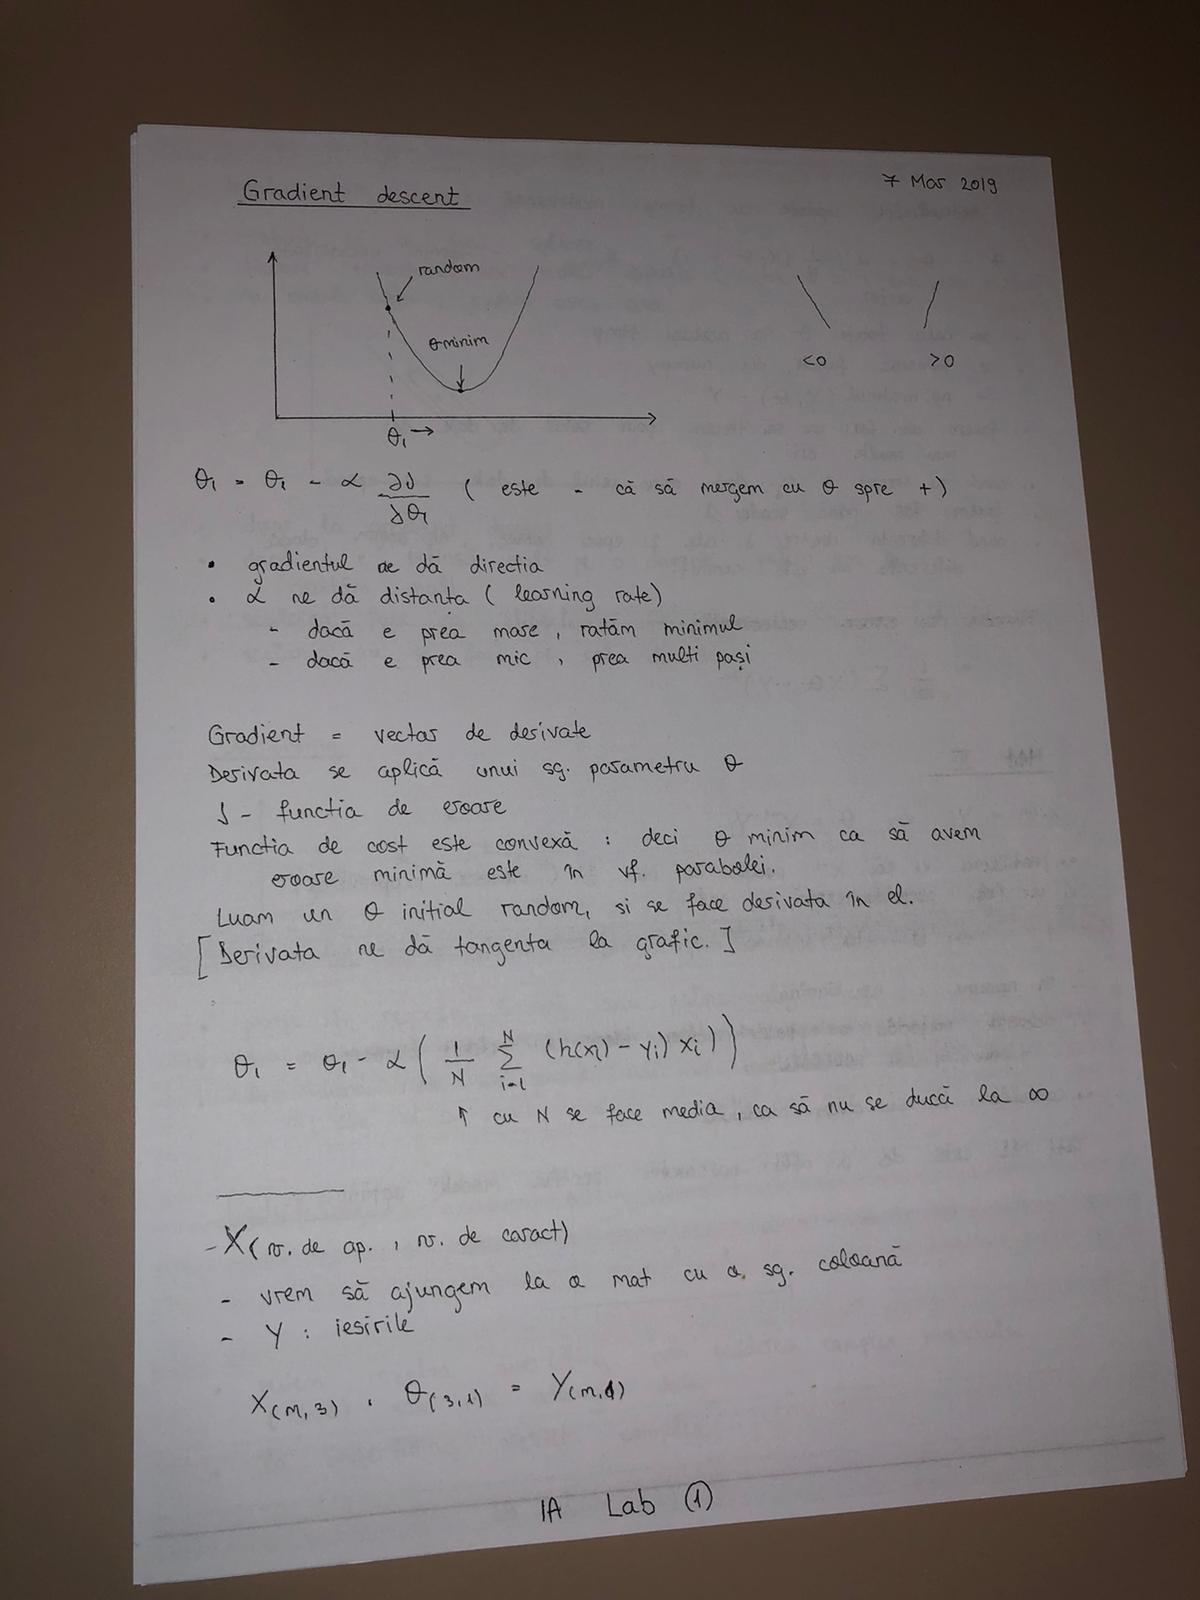 7 Mar 2019
Gradient descent
random
θ minim
θ₁ →
<0 >0
θ₁ = θ₁ - α ∂J/∂θ₁ ( este - că să mergem cu θ spre +)
• gradientul ne dă directia
• α ne dă distanța ( learning rate)
- dacă e prea mare, ratăm minimul
- dacă e prea mic, prea multi pași
Gradient = vector de derivate
Derivata se aplică unui sg. parametru θ
J - functia de eroare
Functia de cost este convexă : deci θ minim ca să avem
eroare minimă este în vf. parabolei.
Luam un θ initial random, si se face derivata în el.
[ Derivata ne dă tangenta la grafic. ]
θ₁ = θ₁ - α ( 1/N N Σ i=1 (h(xi) - yi) xi ) )
↑ cu N se face media, ca să nu se ducă la ∞
- X( nr. de ap. , nr. de caract)
- vrem să ajungem la o mat cu o sg. coloană
- Y : iesirile
X(m,3) · θ(3,1) = Y(m,1)
IA Lab (1)